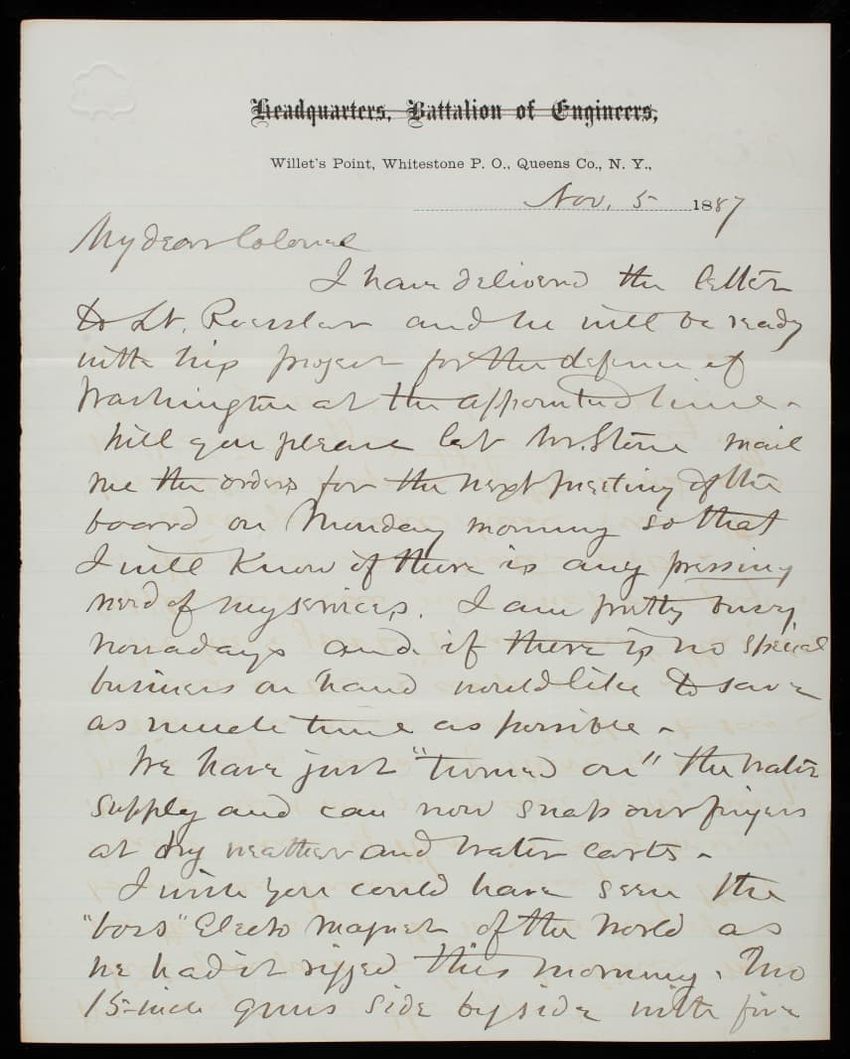 Headquarters, Battalion of Engineers,
Willet's Point, Whitestone P. O., Queens Co., N. Y.,
Nov. 5 1887
My dear Colonel
I have delivered the letter
to Lt. Roessler and he will be ready
with his project for the defence of
Washington at the appointed time.
Will you please let Mr. Stone mail
me the orders for the next meeting of the
board on Monday morning so that
I will know if there is any pressing
need of my services. I am pretty busy
nowadays and if there is no special
business on hand would like to save
as much time as possible.
We have just "turned on" the water
supply and can now snap our fingers
at dry weather and water carts.
I wish you could have seen the
"boss" Electo magnet of the World as
we had it rigged this morning. Two
15-inch guns side by side with five